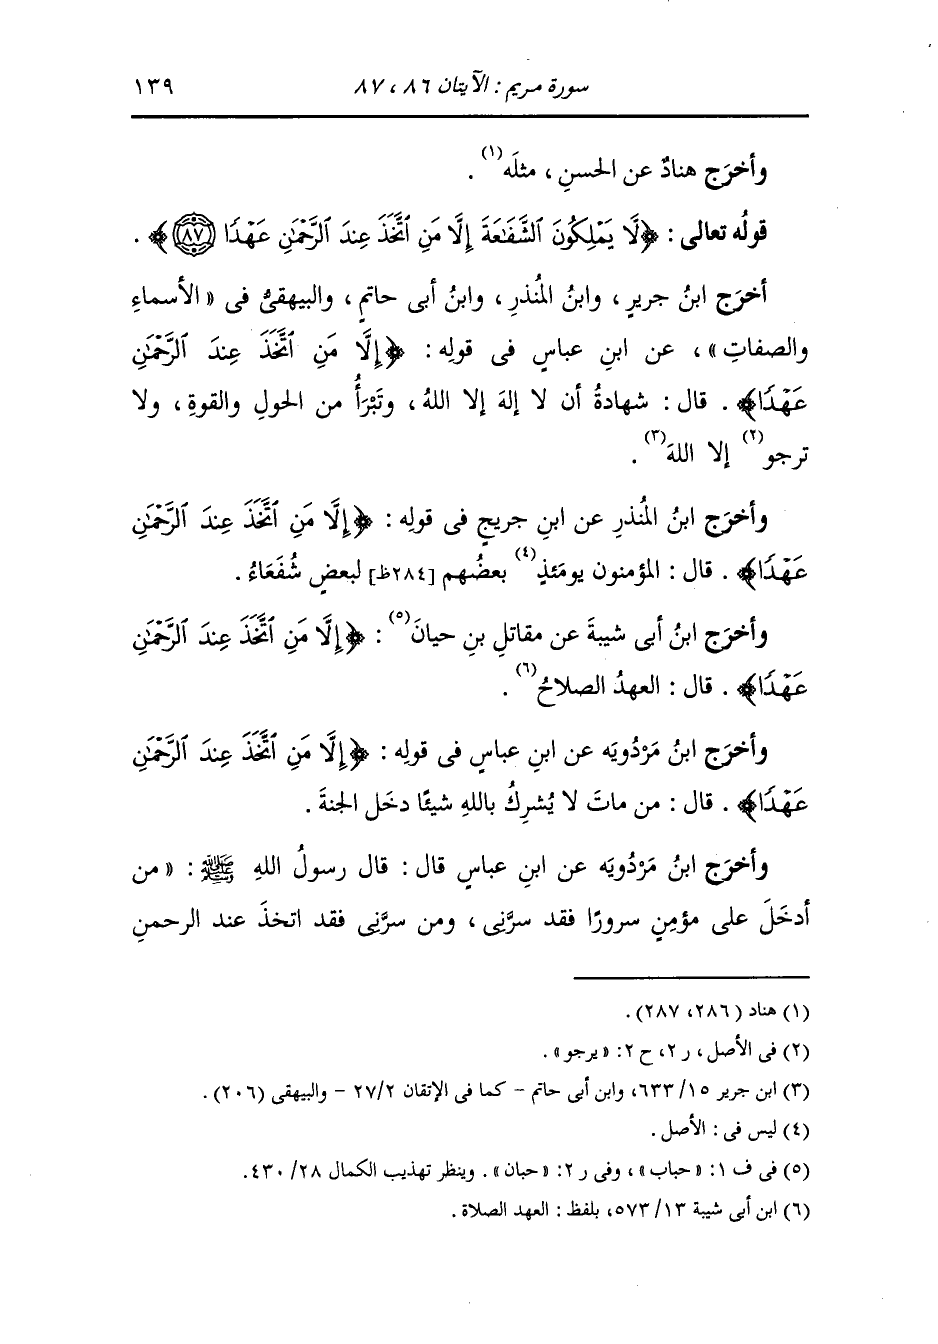 سورة مريم : الآيتان ٨٦ ، ٨٧ ١٣٩
وأخرَج هنادٌ عن الحسنِ ، مثلَه(١) .
قولُه تعالى : ﴿لَّا يَمْلِكُونَ ٱلشَّفَٰعَةَ إِلَّا مَنِ ٱتَّخَذَ عِندَ ٱلرَّحْمَٰنِ عَهْدًا ﴿٨٧﴾﴾ .
أخرَج ابنُ جريرٍ ، وابنُ المُنذرِ ، وابنُ أبى حاتمٍ ، والبيهقىُّ فى « الأسماءِ
والصفاتِ » ، عن ابنِ عباسٍ فى قولِه : ﴿إِلَّا مَنِ ٱتَّخَذَ عِندَ ٱلرَّحْمَٰنِ
عَهْدًا﴾ . قال : شهادةُ أن لا إلهَ إلا اللهُ ، وتَبْرَأُ من الحولِ والقوةِ ، ولا
ترجو(٢) إلا اللهَ(٣) .
وأخرَج ابنُ المُنذرِ عن ابنِ جريجٍ فى قولِه : ﴿إِلَّا مَنِ ٱتَّخَذَ عِندَ ٱلرَّحْمَٰنِ
عَهْدًا﴾ . قال : المؤمنون يومَئذٍ(٤) بعضُهم [٢٨٤ظ] لبعضٍ شُفَعَاءُ .
وأخرَج ابنُ أبى شيبةَ عن مقاتلِ بنِ حيانَ(٥) : ﴿إِلَّا مَنِ ٱتَّخَذَ عِندَ ٱلرَّحْمَٰنِ
عَهْدًا﴾ . قال : العهدُ الصلاحُ(٦) .
وأخرَج ابنُ مَرْدُويَه عن ابنِ عباسٍ فى قولِه : ﴿إِلَّا مَنِ ٱتَّخَذَ عِندَ ٱلرَّحْمَٰنِ
عَهْدًا﴾ . قال : من ماتَ لا يُشرِكُ باللهِ شيئًا دخَل الجنةَ .
وأخرَج ابنُ مَرْدُويَه عن ابنِ عباسٍ قال : قال رسولُ اللهِ ﷺ : « من
أدخَلَ على مؤمِنٍ سرورًا فقد سرَّنِى ، ومن سرَّنِى فقد اتخذَ عند الرحمنِ
(١) هناد (٢٨٦، ٢٨٧) .
(٢) فى الأصل ، ر ٢، ح ٢: « يرجو » .
(٣) ابن جرير ١٥/ ٦٣٣، وابن أبى حاتم - كما فى الإتقان ٢٧/٢ - والبيهقى (٢٠٦) .
(٤) ليس فى : الأصل .
(٥) فى ف ١: « حباب » ، وفى ر ٢: « حبان » . وينظر تهذيب الكمال ٢٨/ ٤٣٠.
(٦) ابن أبى شيبة ١٣/ ٥٧٣، بلفظ : العهد الصلاة .